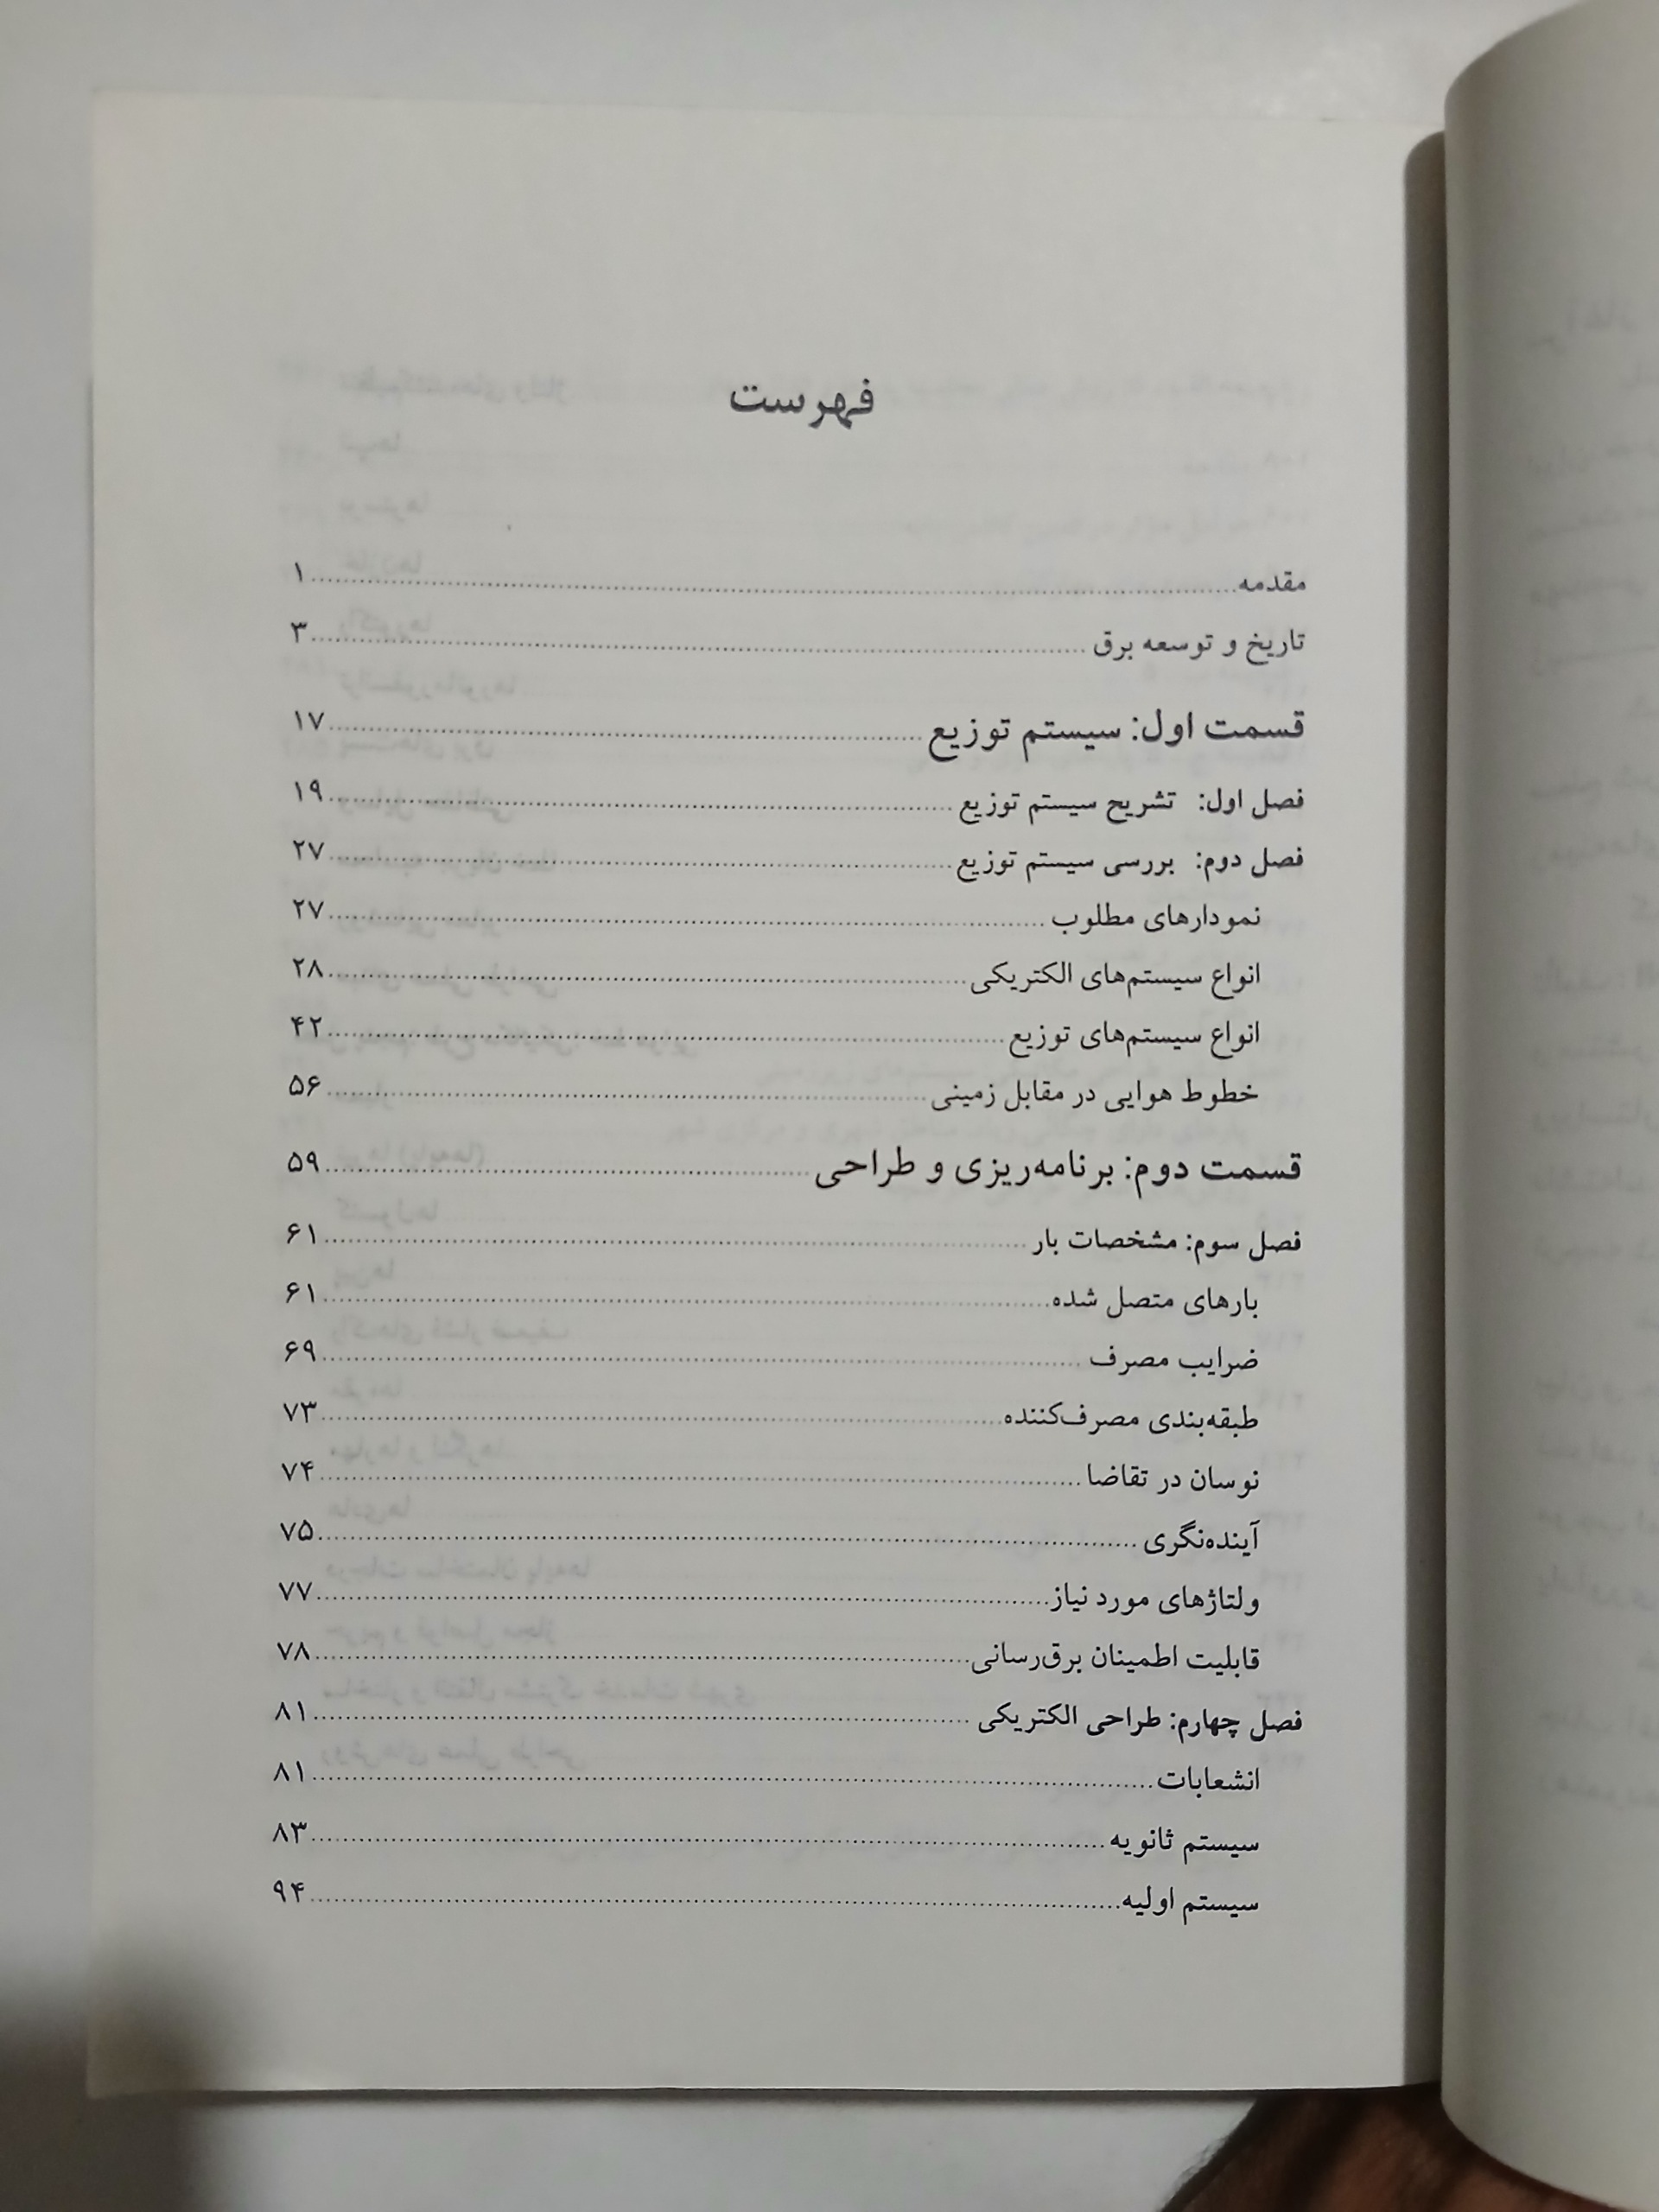 فهرست
مقدمه ........ ۱
تاریخ و توسعه برق ........ ۳
قسمت اول: سیستم توزیع ........ ۱۷
فصل اول: تشریح سیستم توزیع ........ ۱۹
فصل دوم: بررسی سیستم توزیع ........ ۲۷
نمودارهای مطلوب ........ ۲۷
انواع سیستم‌های الکتریکی ........ ۲۸
انواع سیستم‌های توزیع ........ ۴۲
خطوط هوایی در مقابل زمینی ........ ۵۶
قسمت دوم: برنامه‌ریزی و طراحی ........ ۵۹
فصل سوم: مشخصات بار ........ ۶۱
بارهای متصل شده ........ ۶۱
ضرایب مصرف ........ ۶۹
طبقه‌بندی مصرف‌کننده ........ ۷۳
نوسان در تقاضا ........ ۷۴
آینده‌نگری ........ ۷۵
ولتاژهای مورد نیاز ........ ۷۷
قابلیت اطمینان برق‌رسانی ........ ۷۸
فصل چهارم: طراحی الکتریکی ........ ۸۱
انشعابات ........ ۸۱
سیستم ثانویه ........ ۸۳
سیستم اولیه ........ ۹۴